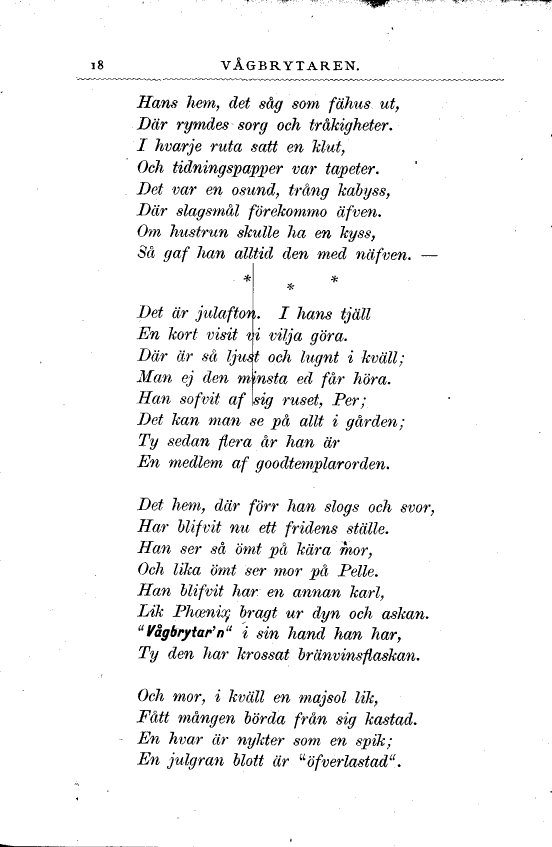 18 VÅGBRYTAREN.
Hans hem, det såg som fähus ut,
Där rymdes sorg och tråkigheter.
I hvarje ruta satt en klut,
Och tidningspapper var tapeter.
Det var en osund, trång kabyss,
Där slagsmål förekommo äfven.
Om hustrun skulle ha en kyss,
Så gaf han alltid den med näfven. —
* * *
Det är julafton. I hans tjäll
En kort visit vi vilja göra.
Där är så ljust och lugnt i kväll;
Man ej den minsta ed får höra.
Han sofvit af sig ruset, Per;
Det kan man se på allt i gården;
Ty sedan flera år han är
En medlem af goodtemplarorden.
Det hem, där förr han slogs och svor,
Har blifvit nu ett fridens ställe.
Han ser så ömt på kära mor,
Och lika ömt ser mor på Pelle.
Han blifvit har en annan karl,
Lik Phœnix, bragt ur dyn och askan.
“Vågbrytar'n“ i sin hand han har,
Ty den har krossat bränvinsflaskan.
Och mor, i kväll en majsol lik,
Fått mången börda från sig kastad.
En hvar är nykter som en spik;
En julgran blott är “öfverlastad“.